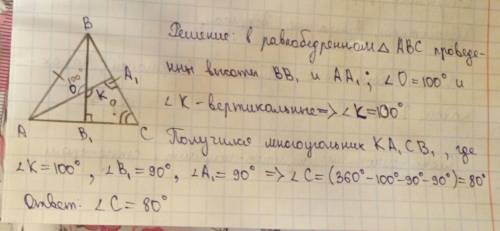 B
100°
O
K
A₁
O
A
B₁
C
Решение: в равнобедренном △ ABC проведе-
ны высоты BB₁ и AA₁; ∠O=100° и
∠K - вертикальные => ∠K=100°
Получился многоугольник KA₁CB₁, где
∠K=100°, ∠B₁=90°, ∠A₁=90° => ∠C=(360°-100°-90°-90°)=80°
Ответ: ∠C=80°